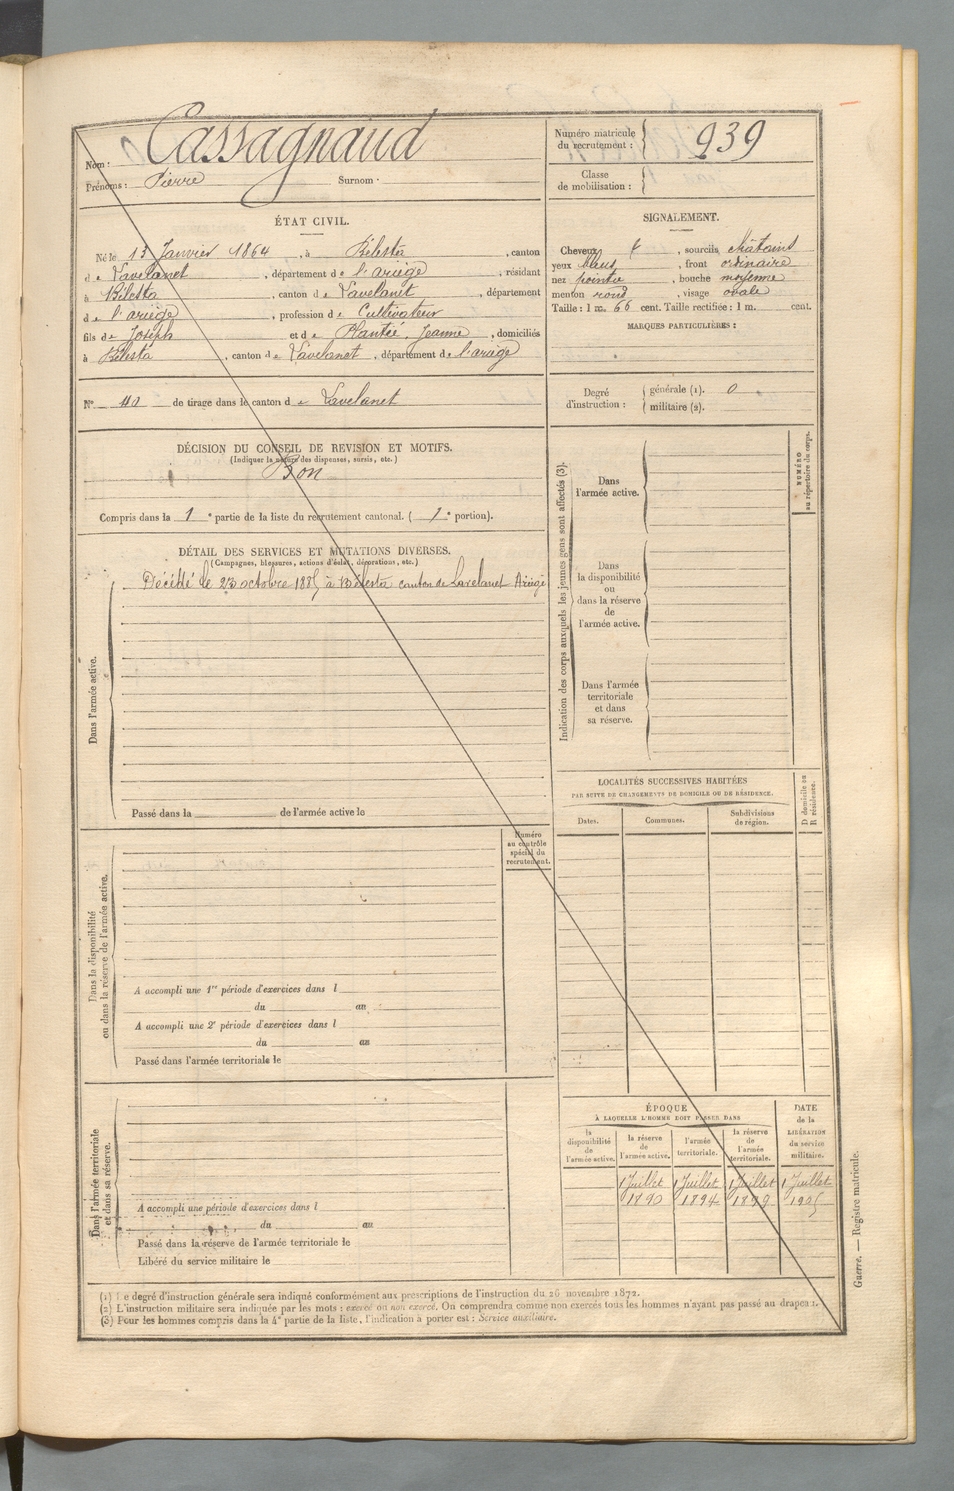 Nom : Cassagnaud
Prénoms : Pierre Surnom ·
Numéro matricule du recrutement : 939
Classe de mobilisation :
ÉTAT CIVIL.
Né le 13 Janvier 1864, à Bélesta, canton
de Lavelanet, département de l'ariège, résidant
à Bélesta, canton de Lavelanet, département
de l'ariège, profession de Cultivateur
fils de Joseph et de Plantié, Jeanne, domiciliés
à Bélesta, canton de Lavelanet, département de l'ariège
N° 110 de tirage dans le canton de Lavelanet
SIGNALEMENT.
Cheveux et, sourcils châtains
yeux bleus, front ordinaire
nez pointu, bouche moyenne
menton rond, visage ovale
Taille : 1 m. 66 cent. Taille rectifiée : 1 m. cent.
MARQUES PARTICULIÈRES :
Degré d'instruction : générale (1). 0
militaire (2).
DÉCISION DU CONSEIL DE REVISION ET MOTIFS.
(Indiquer la nature des dispenses, sursis, etc.)
Bon
Compris dans la 1e partie de la liste du recrutement cantonal. (1e portion).
DÉTAIL DES SERVICES ET MUTATIONS DIVERSES.
(Campagnes, blessures, actions d'éclat, décorations, etc.)
Décédé le 23 octobre 1885 à Bélesta canton de Lavelanet Ariège
Dans l'armée active.
Passé dans la de l'armée active le
Dans la disponibilité
ou dans la réserve de l'armée active.
Numéro
au contrôle
spécial du
recrutement.
A accompli une 1re période d'exercices dans l
du au
A accompli une 2e période d'exercices dans l
du au
Passé dans l'armée territoriale le
Dans l'armée territoriale
et dans sa réserve.
A accompli une période d'exercices dans l
du au
Passé dans la réserve de l'armée territoriale le
Libéré du service militaire le
Indication des corps auxquels les jeunes gens sont affectés (3).
Dans
l'armée active.
Dans
la disponibilité
ou
dans la réserve
de
l'armée active.
Dans l'armée
territoriale
et dans
sa réserve.
NUMÉRO
au répertoire du corps.
LOCALITÉS SUCCESSIVES HABITÉES
PAR SUITE DE CHANGEMENTS DE DOMICILE OU DE RÉSIDENCE.
Dates. Communes. Subdivisions de région.
D domicile ou
R résidence.
ÉPOQUE
À LAQUELLE L'HOMME DOIT PASSER DANS
la disponibilité de l'armée active.
la réserve de l'armée active.
l'armée territoriale.
la réserve de l'armée territoriale.
DATE de la LIBÉRATION du service militaire.
1 Juillet 1 Juillet 1 Juillet 1 Juillet
1890 1894 1899 1905
(1) Le degré d'instruction générale sera indiqué conformément aux prescriptions de l'instruction du 26 novembre 1872.
(2) L'instruction militaire sera indiquée par les mots : exercé ou non exercé. On comprendra comme non exercés tous les hommes n'ayant pas passé au drapeau.
(3) Pour les hommes compris dans la 4e partie de la liste, l'indication à porter est : Service auxiliaire.
Guerre. — Registre matricule.